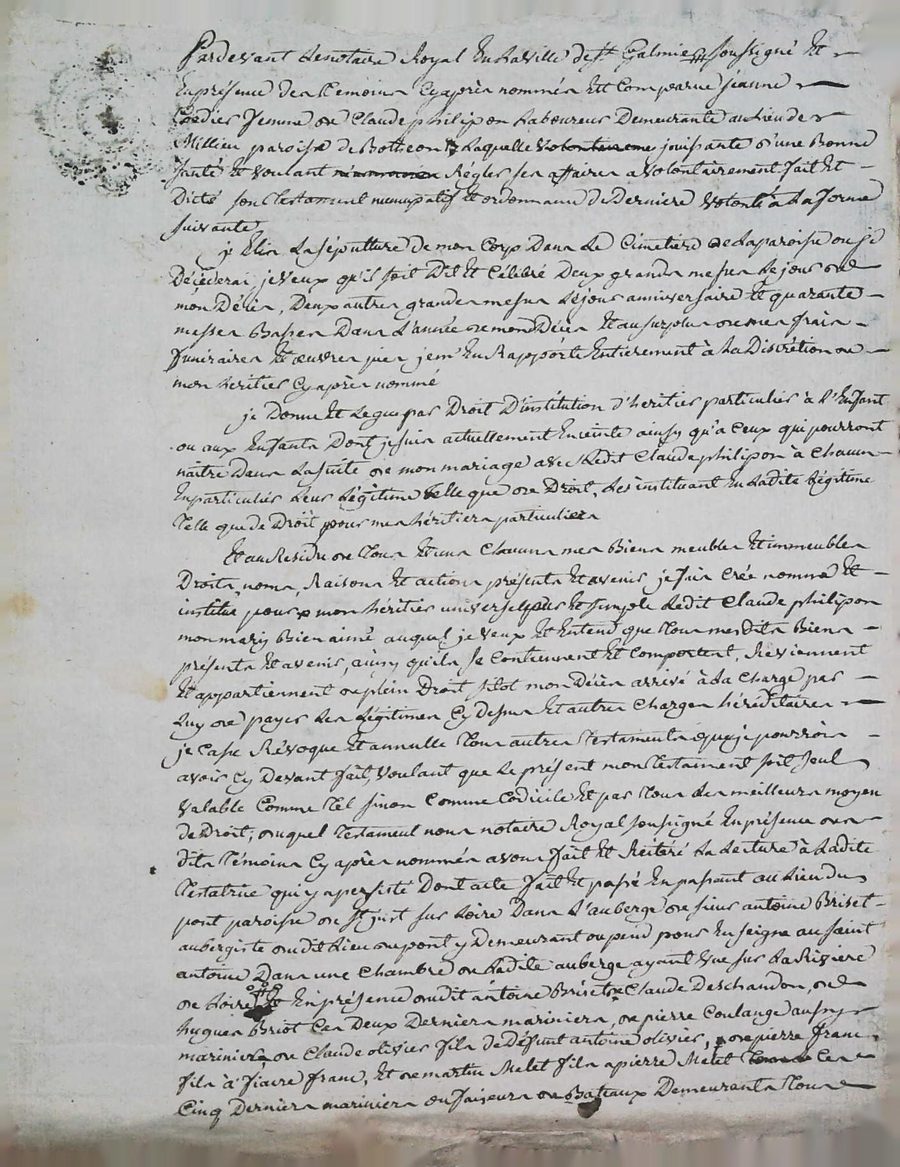 Pardevant Le notaire Royal En La Ville de St Galmier soussigné Et
En présence des temoins Cy après nommés Est Comparue jeanne
Cordier femme de Claude philipon Laboureur Demeurante au Lieu de
Millieu paroisse de Botheon Laquelle volontairement jouissante d'une Bonne
santé Et voulant Régler ses affaires a volontairement fait Et
Dicté son testament nuncupatif Et ordonnance de Derniere volonté à La forme
suivante
je Elis La sépultture de mon Corp Dans Le Cimetiere de La paroisse ou je
Décéderai, je veux qu'il soit Dit Et Célébré Deux grandes messes Le jour de
mon Décès, Deux autres grandes messes Le jour anniversaire Et quarante
messes Basses Dans L'année de mon Décès Et au surplus de mes frais
funéraires Et œuvres pies je m'En Rapporte Entièrement à La Discrétion de
mon heritier Cy après nommé
je Donne Et Legue par Droit D'institution d'heritier particulier à L'Enfant
ou aux Enfants Dont je suis actuellement Enceinte ainsy qu'a Ceux qui pourront
naitre Dans La suite de mon mariage avec Ledit Claude philipon à Chacun
En particulier Leur Légitime telle que de Droit, Les instituant En Ladite Légitime
telle que de Droit pour mes héritiers particuliers
Et au Residu de tous Et uns Chacuns mes Biens meubles Et immeubles
Droits, noms, Raisons Et actions présents Et avenir je fais Crée nomme Et
institue pour mon héritier universel pur Et simple Ledit Claude philipon
mon mary Bien aimé auquel je veux Et Entend que tous mesdits Biens
présents Et avenir, ainsy qu'ils se Contiennent Et Comportent, Reviennent
Et appartiennent de plein Droit sitot mon Décès arrivé à La Charge par
Luy de payer Les Légitimes Cy Dessus Et autres Charges héréditaires
je Casse Révoque Et annulle tous autres testaments que je pourrois
avoir Cy Devant fait, voulant que Le présent mon testament soit seul
valable Comme tel sinon Comme Codicile Et par tous Les meilleurs moyen
de Droit; duquel testament nous notaire Royal soussigné En présence des
dits témoins Cy après nommés avons fait Et Reitéré La Lecture à Ladite
testatrice qui y a persisté Dont acte fait Et passé En passant au Lieu du
pont paroisse de St just sur Loire Dans L'auberge de sieur antoine Briset
aubergiste dudit Lieu du pont y Demeurant ou pend pour Enseigne au saint
antoine Dans une Chambre de Ladite auberge ayant vue sur La Riviere
de Loire En présence dudit antoine Briset de Claude Deschandon, de
hugues Briot Ces Deux Derniers mariniers, de pierre Coulange aussy
marinier de Claude olivier fils de Défunt antoine olivier, de pierre franc
fils à fiacre franc, Et de martin Melet fils a pierre Melet Ces
Cinq Derniers mariniers ou faiseurs de Bateaux Demeurants tous